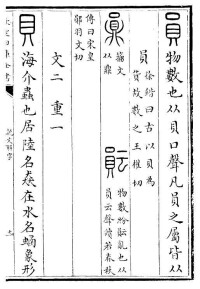 員物數也从貝口聲凡員之屬皆从
員
徐鍇曰古以貝為
貨故數之王權切
籒文
从鼎
物數紛䝉亂也从
員云聲讀若春秋
傳曰宋皇
鄖羽文切
文二 重一
貝海介蟲也居陸名猋在水名蜬象形
說文解字